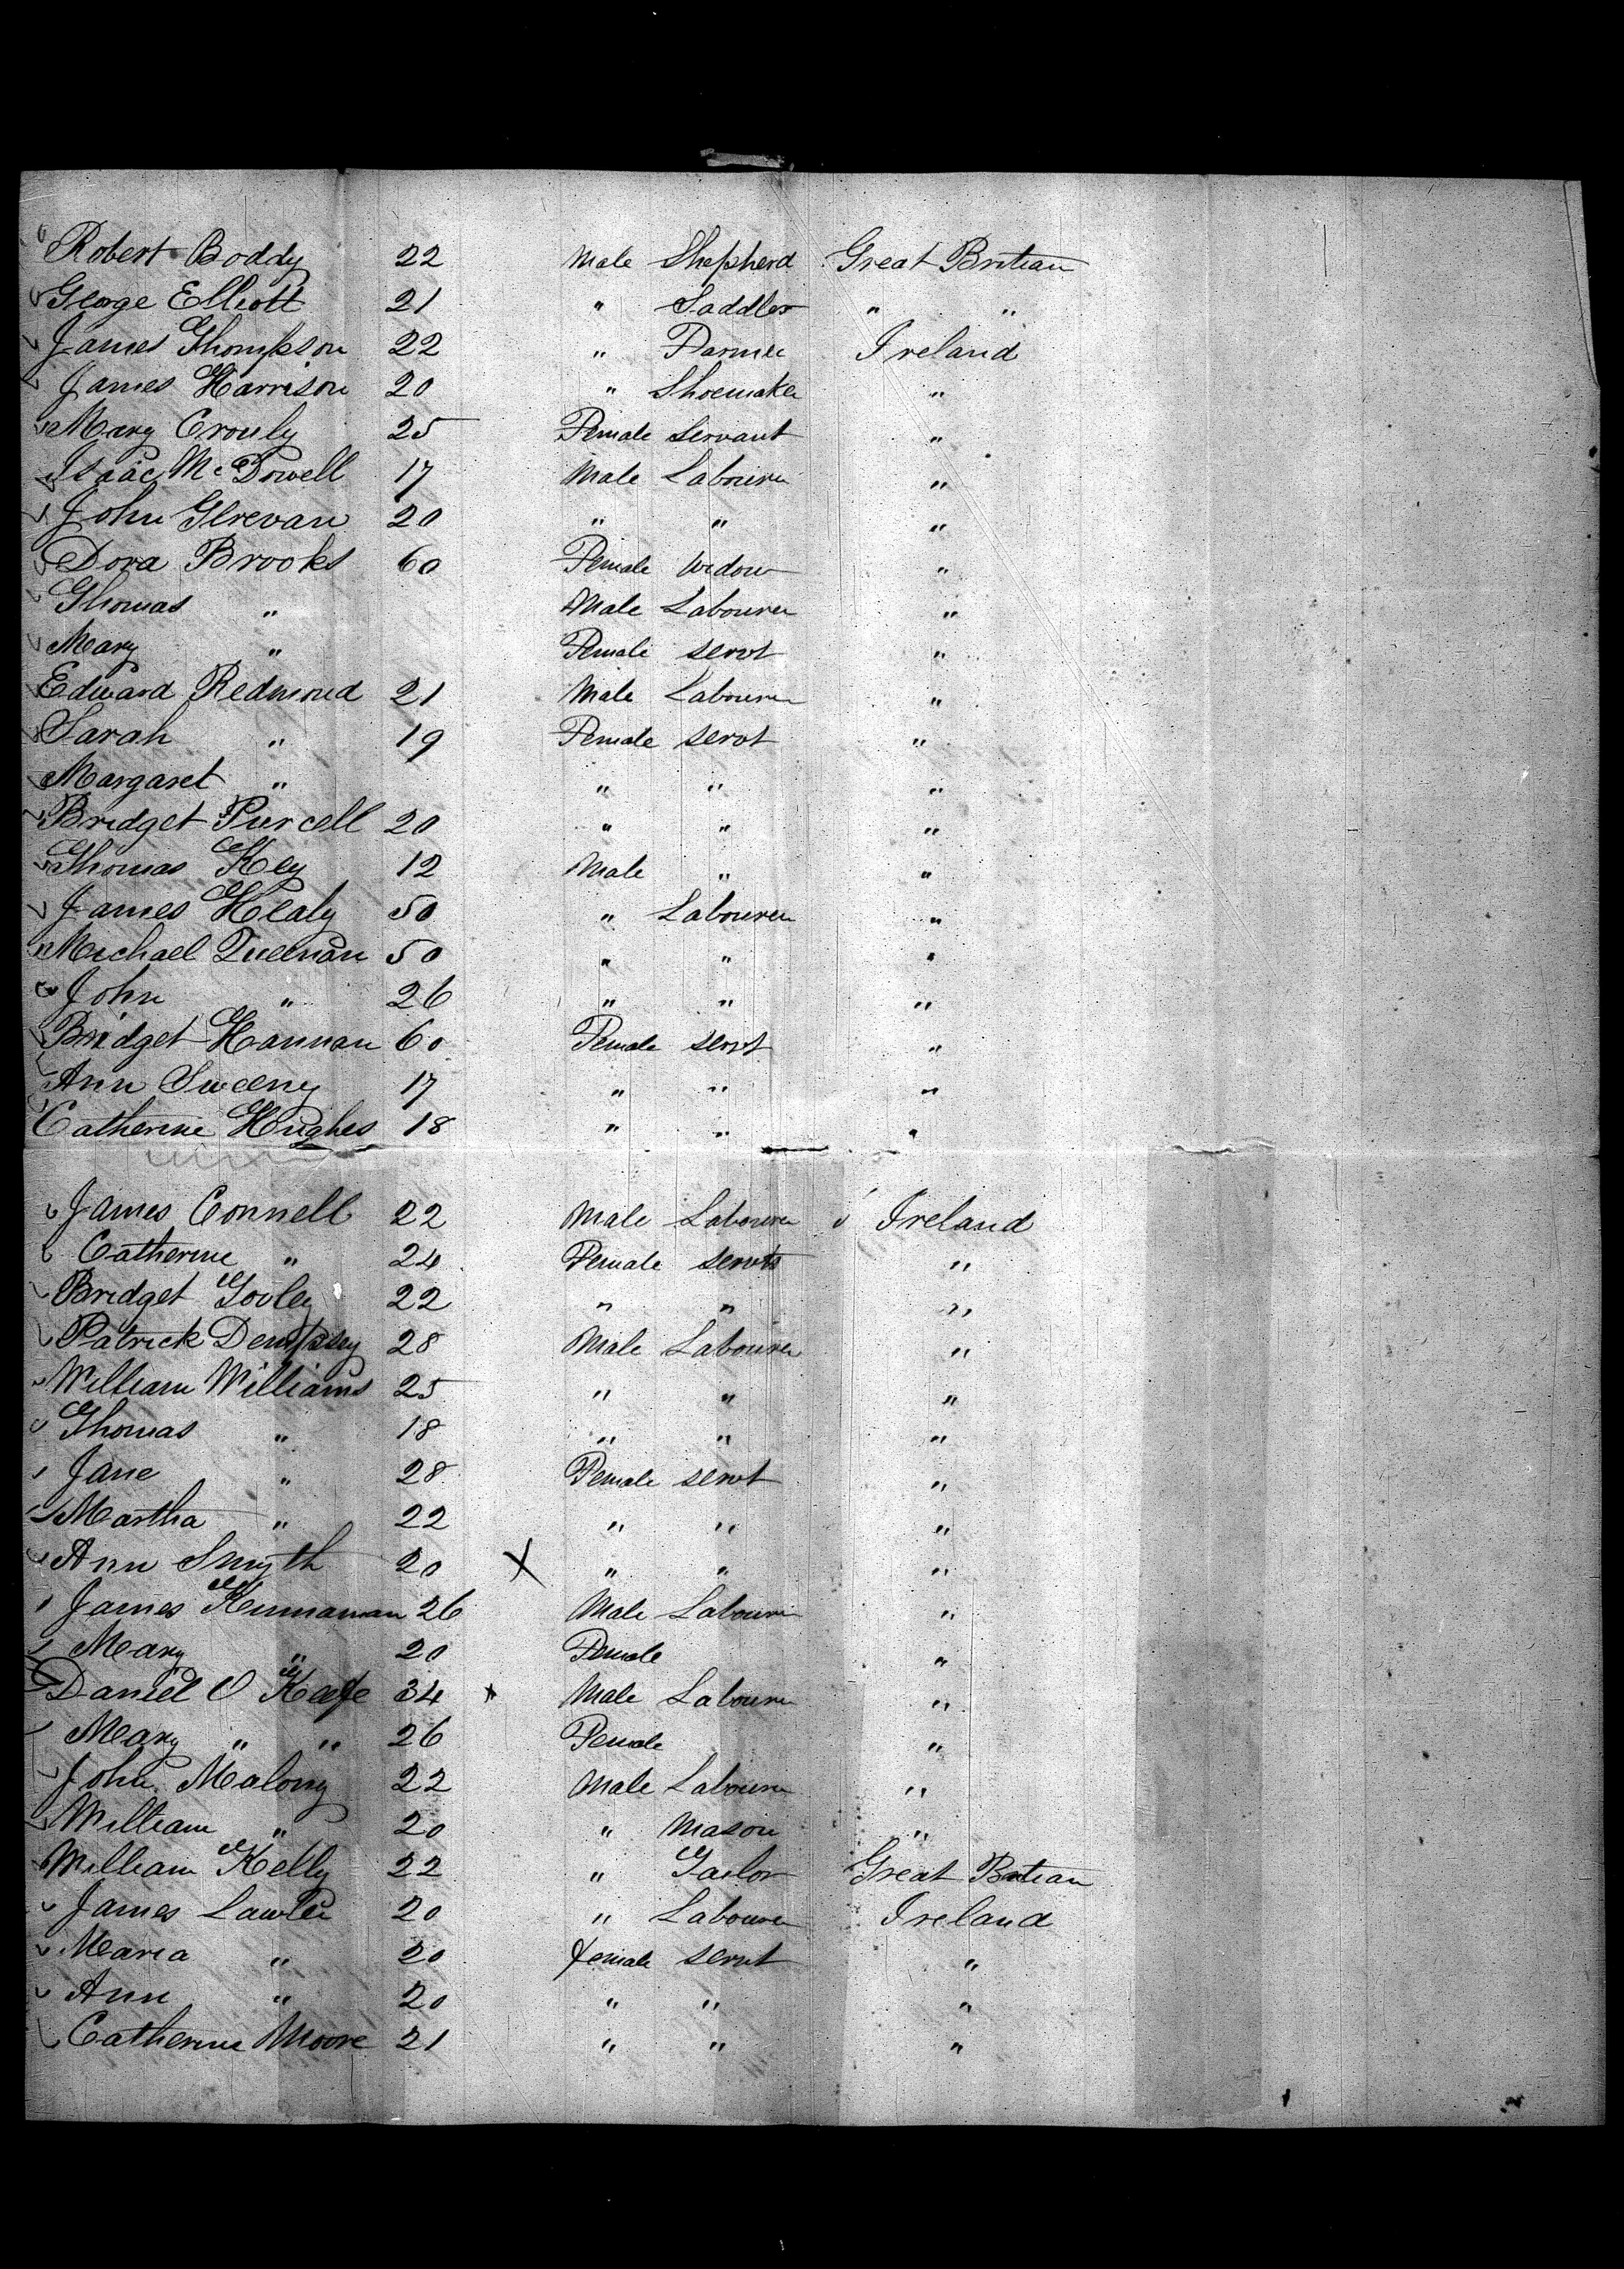 Robert Boddy 22 Male Shepherd Great Britian
George Elliott 21 " Saddler " "
James Thompson 22 " Farmer Ireland
James Harrison 20 " Shoemaker "
Mary Crouly 25 Female Servant "
Isaac Mc Dowell 17 Male Labourer "
John 20 " " "
Dora Brooks 60 Female Widow "
Thomas " Male Labourer "
Mary " Female servt "
Edward Redmond 21 Male Labourer "
Sarah " 19 Female servt "
Margaret " " " "
Bridget Purcell 20 " " "
Thomas Key 12 Male " "
James Healy 50 " Labourer "
Michael 50 " " "
John " 26 " " "
Bridget Hannan 60 Female servt "
Ann Sweeny 17 " " "
Catherine Hughes 18 " " "
James Connell 22 Male Labourer Ireland
Catherine " 24 Female servts "
Bridget Gooley 22 " " "
Patrick Dempsey 28 Male Labourer "
William Williams 25 " " "
Thomas " 18 " " "
Jane " 28 Female servt "
Martha " 22 " " "
Ann Smyth 20 X " " "
James 26 Male Labourer "
Mary " 20 Female "
Daniel O Keefe 34 Male Labourer "
Mary " " 26 Female "
John Malony 22 Male Labourer "
William " 20 " Mason "
William Kelly 22 " Tailor Great Britian
James Lawler 20 " Labourer Ireland
Maria " 20 female servt "
Ann " 20 " " "
Catherine Moore 21 " " "